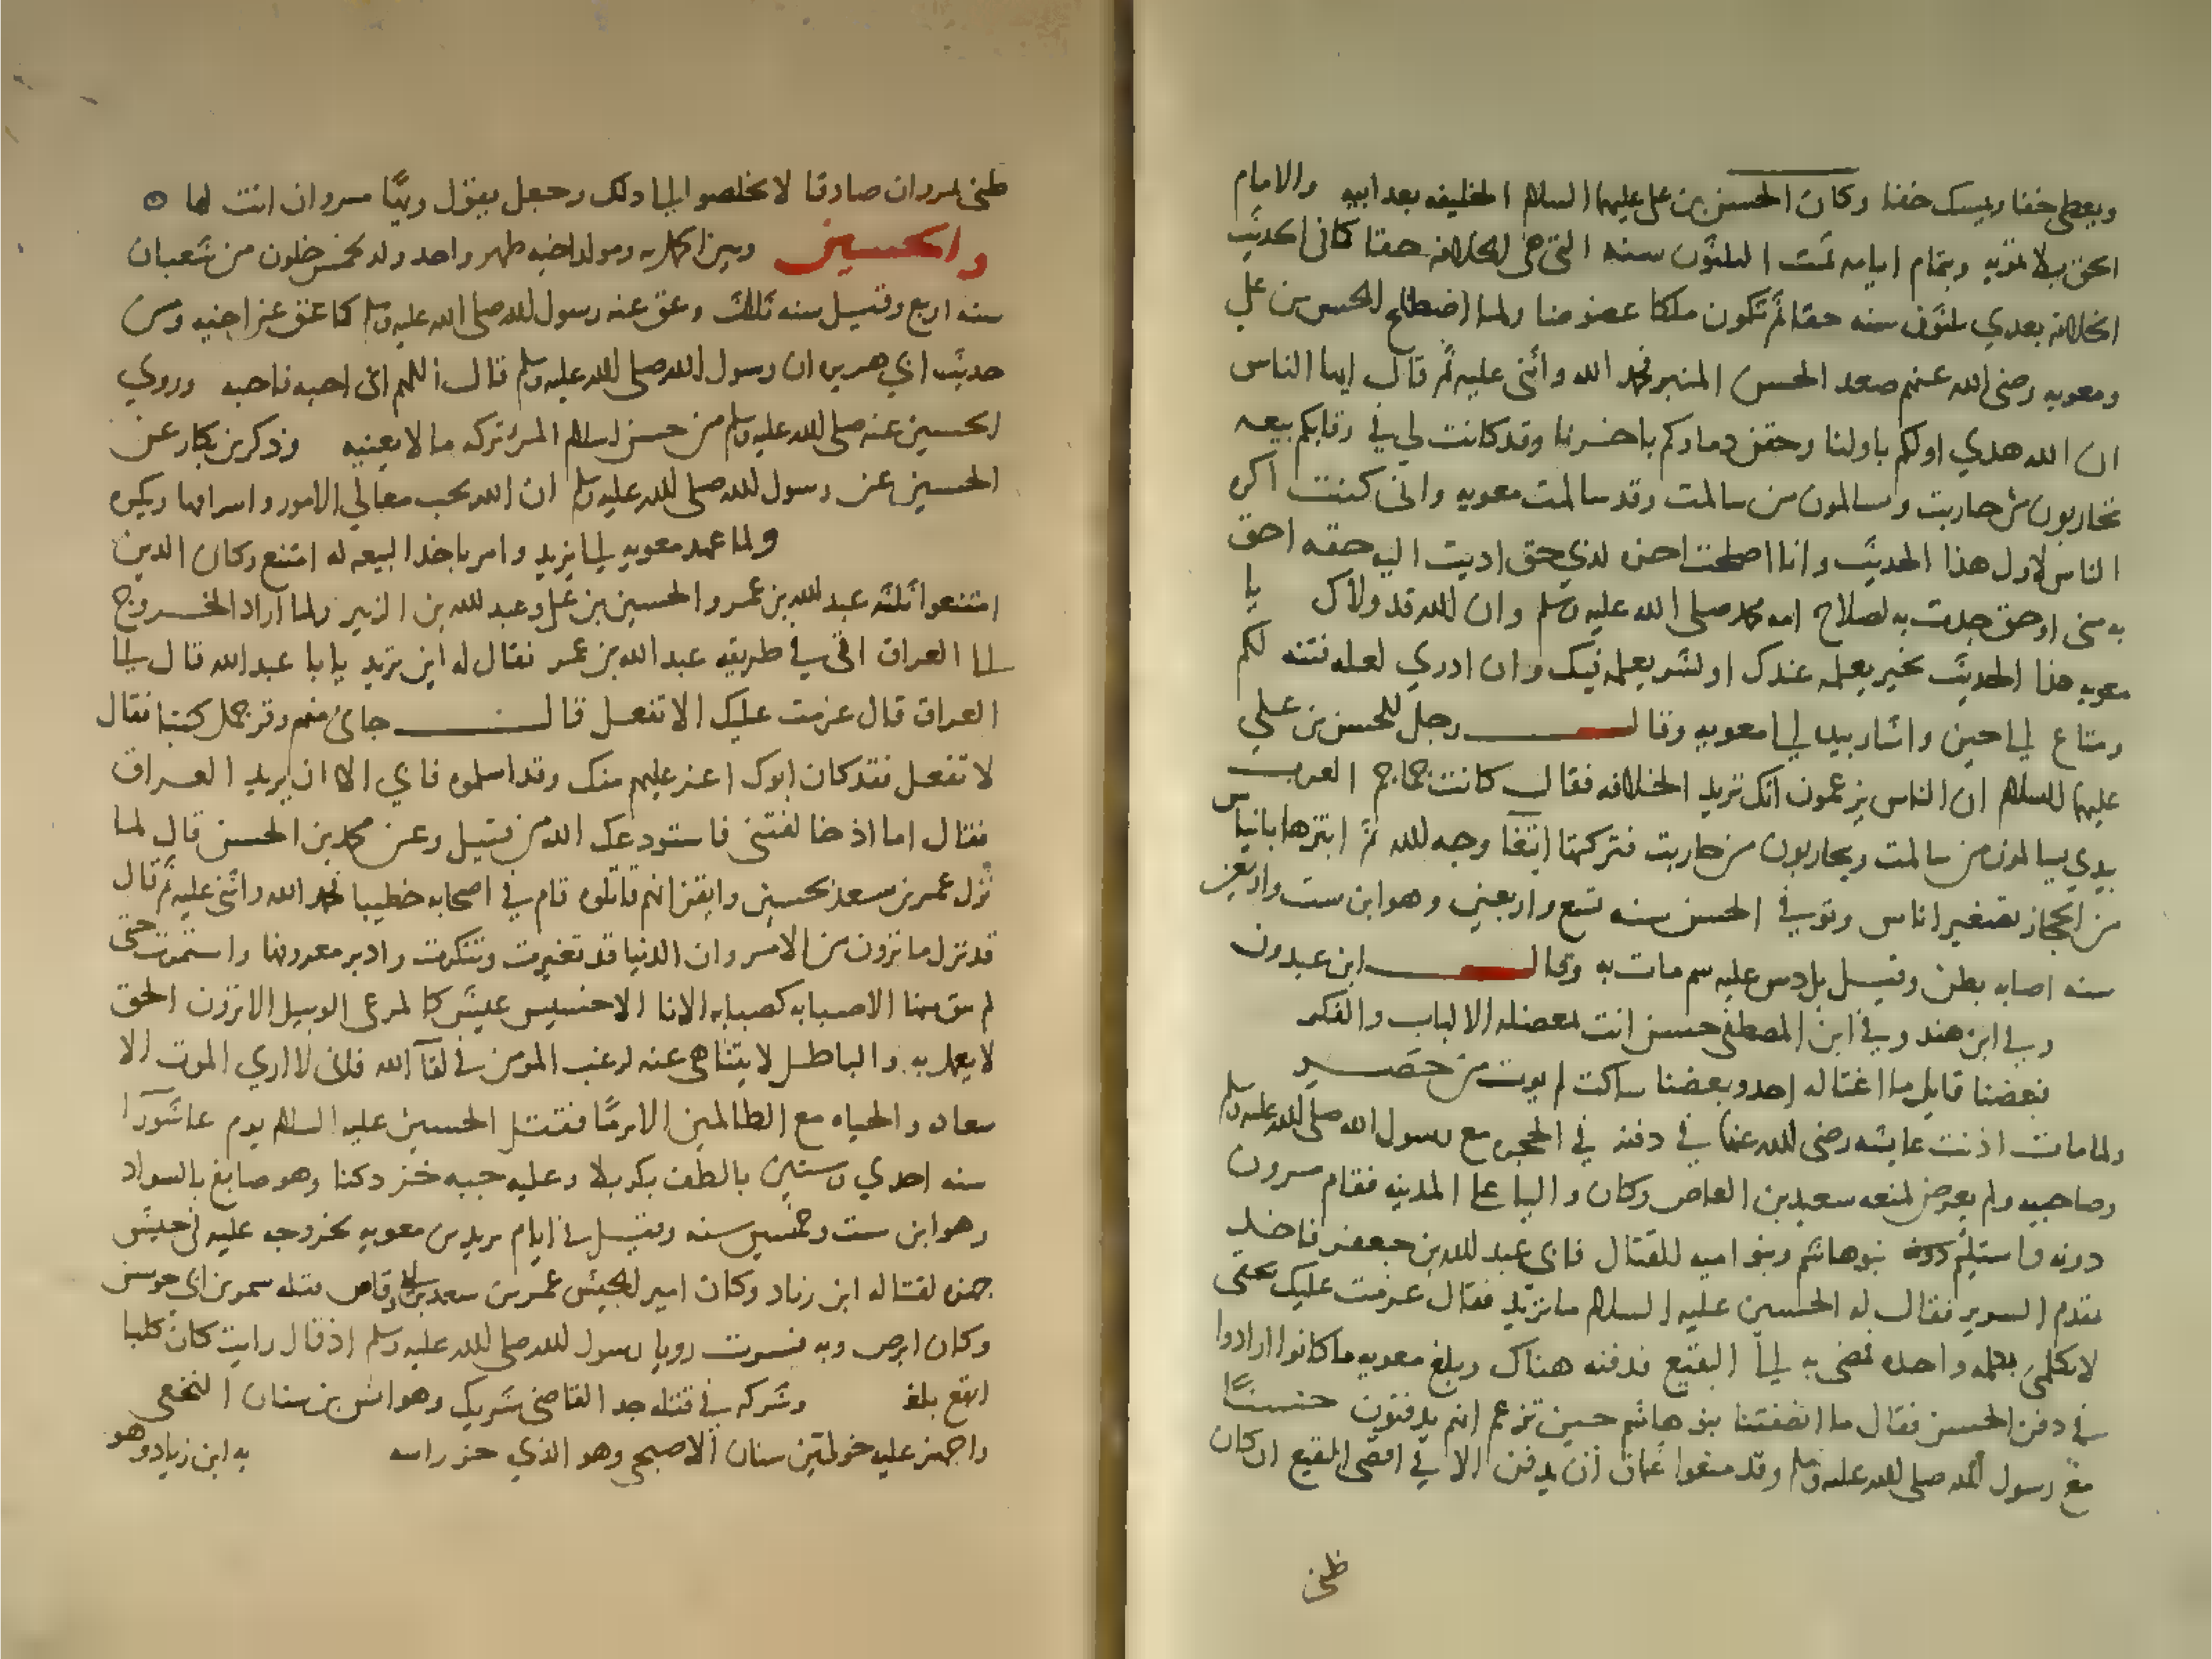 ويعطي خفا ويمسك خفا وكان الحسن بن علي عليهما السلام الخليفه بعد ابيه والامام
الحق بلا مريه وبتمام ايامه تمت الثلثون سنه التي هي الخلافه حقا كما في الحديث
الخلافه بعدي ثلثون سنه حقا ثم تكون ملكا عضوضا ولما اصطلح الحسن بن علي
ومعويه رضي الله عنهم صعد الحسن المنبر فحمد الله واثنى عليه ثم قال ايها الناس
ان الله هدي اولكم باولنا وحقن دماءكم باخرنا وقد كانت لي في رقابكم بيعه
تحاربون من حاربت وتسالمون من سالمت وقد سالمت معويه واني كنت اكره
الناس لاول هذا الحديث وانا اصلحت اخره لذي حق اديت اليه حقه احق
به مني او حق جدت به لصلاح امه محمد صلى الله عليه وسلم وان الله قد ولاك يا
معويه هذا الحديث لخير يعلمه عندك او لشر يعلمه فيك وان ادري لعله فتنه لكم
ومتاع الي حين واشار بيده الي معويه وقال رجل للحسن بن علي
عليهما السلام ان الناس يزعمون انك تريد الخلافه فقال كانت جماجم العرب
بيدي يسالمون من سالمت ويحاربون من حاربت فتركتها ابتغا وجه الله ثم ابتزها باتياس
من الحجاز تصغير اناس وتوفي الحسن سنه تسع واربعين وهو ابن ست واربعين
سنه اصابه بطن وقيل بل دس عليه سم مات به وقال ابن عبدون
وفي ابن هند وفي ابن المصطفى حسن اتت بمعضله الالباب والفكر
فبعضنا قايل ما اغتاله احد وبعضنا ساكت لم يوت من حصر
ولما مات اذنت عايشه رضي الله عنها في دفنه في الحجره مع رسول الله صلى الله عليه وسلم
وصاحبيه ولم يعرض لمنعه سعيد بن العاص وكان واليا على المدينه فقام مروان
دونه واستلئم دونه بنو هاشم وبنو اميه للقتال فاتي عبد الله بن جعفر فاخذ
بمقدم السرير فقال له الحسين عليه السلام ما تريد فقال عزمت عليك بحقي
لا تكلمني بكلمه واحده فمضى به الي البقيع فدفنه هناك وبلغ معويه ما كانوا ارادوا
في دفن الحسن فقال ما انصفتنا بنو هاشم حين تزعم انهم يدفنون حسنا
مع رسول الله صلى الله عليه وسلم وقد منعوا عثمان ان يدفن الا في اقصى البقيع ان كان
ظني
ظني بمروان صادقا لا يخلصوا الي ذلك وجعل يقول ويها مروان انت لها
والحسين وبين الحمل به ومولد اخيه طهر واحد ولد لخمس خلون من شعبان
سنه اربع وقيل سنه ثلاث وعق عنه رسول الله صلى الله عليه وسلم كما عق عن اخيه ومن
حديث ابي هريره ان رسول الله صلى الله عليه وسلم قال اللهم اني احبه فاحبه وروي
الحسين عنه صلى الله عليه وسلم من حسن اسلام المرء تركه ما لا يعنيه وذكر بن بكار عن
الحسين عن رسول الله صلى الله عليه وسلم ان الله يحب معالي الامور واشرافها ويكره
ولما عهد معويه الي يزيد وامر باخذ البيعه له امتنع وكان الذين
امتنعوا ثلثه عبد الله بن عمر والحسين بن علي وعبد الله بن الزبير ولما اراد الخروج
الي العراق اتي في طريقه عبد الله بن عمر فقال له اين تريد يابا عبد الله قال الي
العراق قال عزمت عليك الا تفعل قال جاني منهم وقر جمل كتبا فقال
لا تفعل فقد كان ابوك اعز عليهم منك وقد اسلموه فابي الا ان يريد العراق
فقال اما اذ خالفتني فاستودعك الله من قتيل وعن محمد بن الحسن قال لما
نزل عمر بن سعد بحسين وايقن انهم قاتلوه قام في اصحابه خطيبا فحمد الله واثنى عليه ثم قال
قد نزل ما ترون من الامر وان الدنيا قد تغيرت وتنكرت وادبر معروفها واستمرت حتى
لم يبق منها الا صبابه كصبابه الانا الا خسيس عيش كالمرعى الوبيل الا ترون الحق
لا يعمل به والباطل لا يتناهى عنه ليرغب المومن في لقا الله فاني لا اري الموت الا
سعاده والحياه مع الظالمين الا برما فقتل الحسين عليه السلام يوم عاشورا
سنه احدي وستين بالطف بكربلا وعليه جبه خز دكنا وهو صابغ بالسواد
وهو ابن ست وخمسين سنه وقتل في ايام يزيد بن معويه بخروجه عليه في جيش
جهزه لقتاله ابن زياد وكان امير الجيش عمر بن سعد بن ابي وقاص قتله شمر بن ذي جوشن
وكان ابرص وبه فسرت رويا رسول الله صلى الله عليه وسلم اذ قال رايت كان كلبا
ابقع يلغ وشركه في قتله جد القاضي شريك وهو انس بن سنان النخعي
واجهز عليه خولي بن سنان الاصبحي وهو الذي حز راسه به ابن زياد وهو